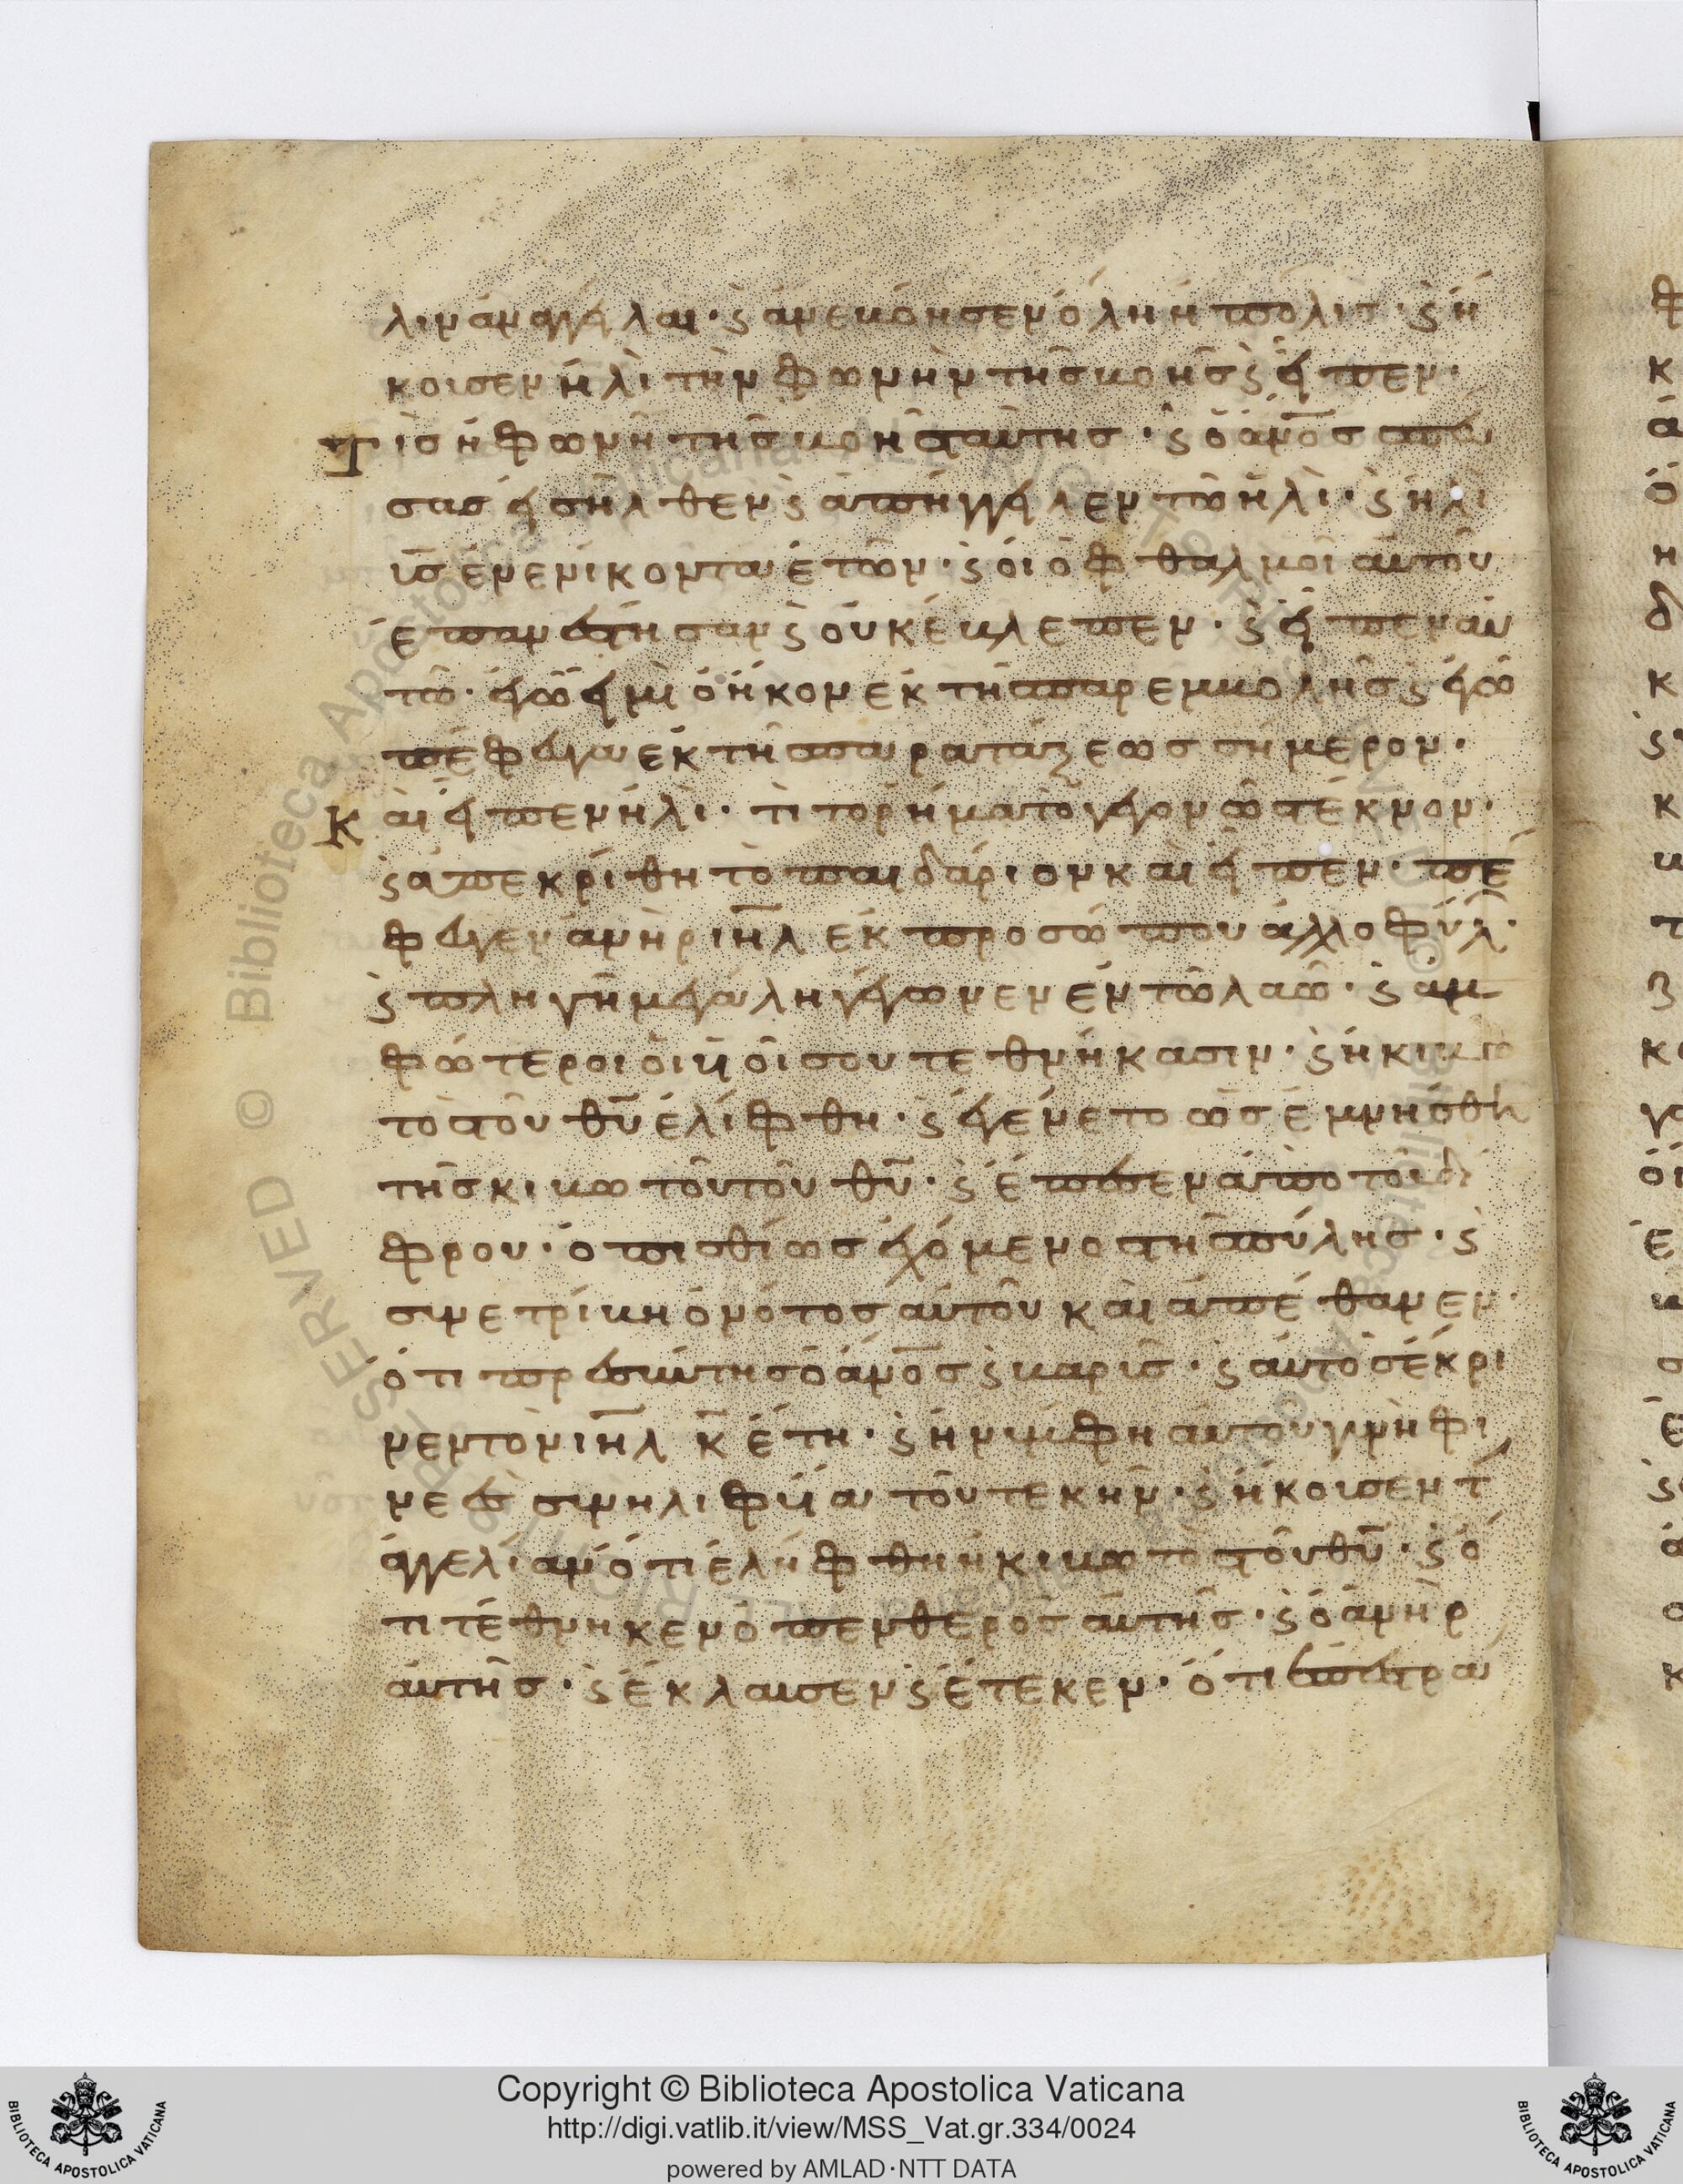 λιν ἀναγγεῖλαι· ϗ ἀνεβόησεν ὅλη ἡ πόλις· ϗ ἤ
κουσεν ἠλὶ τὴν φωνὴν τῆς βοῆς ϗ εἶπεν·
Τίς ἡ φωνὴ τῆς βοῆς ταύτης· ϗ ὁ ἀνο̅ς σπεύ
σας εἰσῆλθεν ϗ ἀπήγγειλεν τῶ ἠλὶ· ϗ ἠλὶ
υι̅ς ἐνενίκοντα ἐτῶν· ϗ οἱ ὀφθαλμοὶ αὐτοῦ
ἐπανέστησαν ϗ οὐκ έβλεπεν· ϗ εἶπεν αὐ
τῶ· ἐγώ εἰμι ὁ ἥκον ἐκ τῆς παρεμβολῆς ϗ ἐγὼ
πέφευγα ἐκ τῆς παρατάξεως σήμερον·
Καὶ εἶπεν ἠλὶ· τί το ρῆμα το γεγονὼς τέκνον·
ϗ ἀπεκρίθη τὸ παιδάριον καὶ εἶπεν· πέ
φευγεν ἀνὴρ ιη̅λ ἐκ προσώπου ἀλλοφύλ·
ϗ πληγὴ μεγάλη γέγωνεν ἐν τῶ λαῶ· ϗ ἀμ
φώτεροι οἱ υἱοί σου τεθνήκασιν· ϗ ἡ κιβω
τὸς τοῦ θυ̅ ἐλίφθη· ϗ ἐγένετο ὡς ἐμνήσθη
τῆς κιβωτοῦ τοῦ θυ̅· ϗ ἔπεσεν ἀπὸ τοῦ δί
φρου· ὀπισθίως ἐχόμενος τῆς πύλης· ϗ
συνετρίβη ὁ νότος αὐτοῦ καὶ ἀπέθανεν·
ὅτι πρεσβύτης ὁ ἀνο̅ς ϗ βαρύς· ϗ αὐτὸς ἔκρι
νεν τὸν ιη̅λ κ̅ ἔτη· ϗ ἡ νύμφη αὐτοῦ γυνὴ φι
νεὲς συνηλιφυῖα τοῦ τεκῆν· ϗ ἤκουσεν τ
ἀγγελίαν ὅτι ἐλήφθη ἡ κιβωτὸς τοῦ θυ̅· ϗ ὅ
τι τέθνηκεν ὁ πενθερὸς αὐτῆς· ϗ ὁ ἀνὴρ
αὐτῆς· ϗ ἔκλαυσεν ϗ ἔτεκεν· ὅτι ἐπεστρα
Copyright © Biblioteca Apostolica Vaticana
http://digi.vatlib.it/view/MSS_Vat.gr.334/0024
powered by AMLAD·NTT DATA